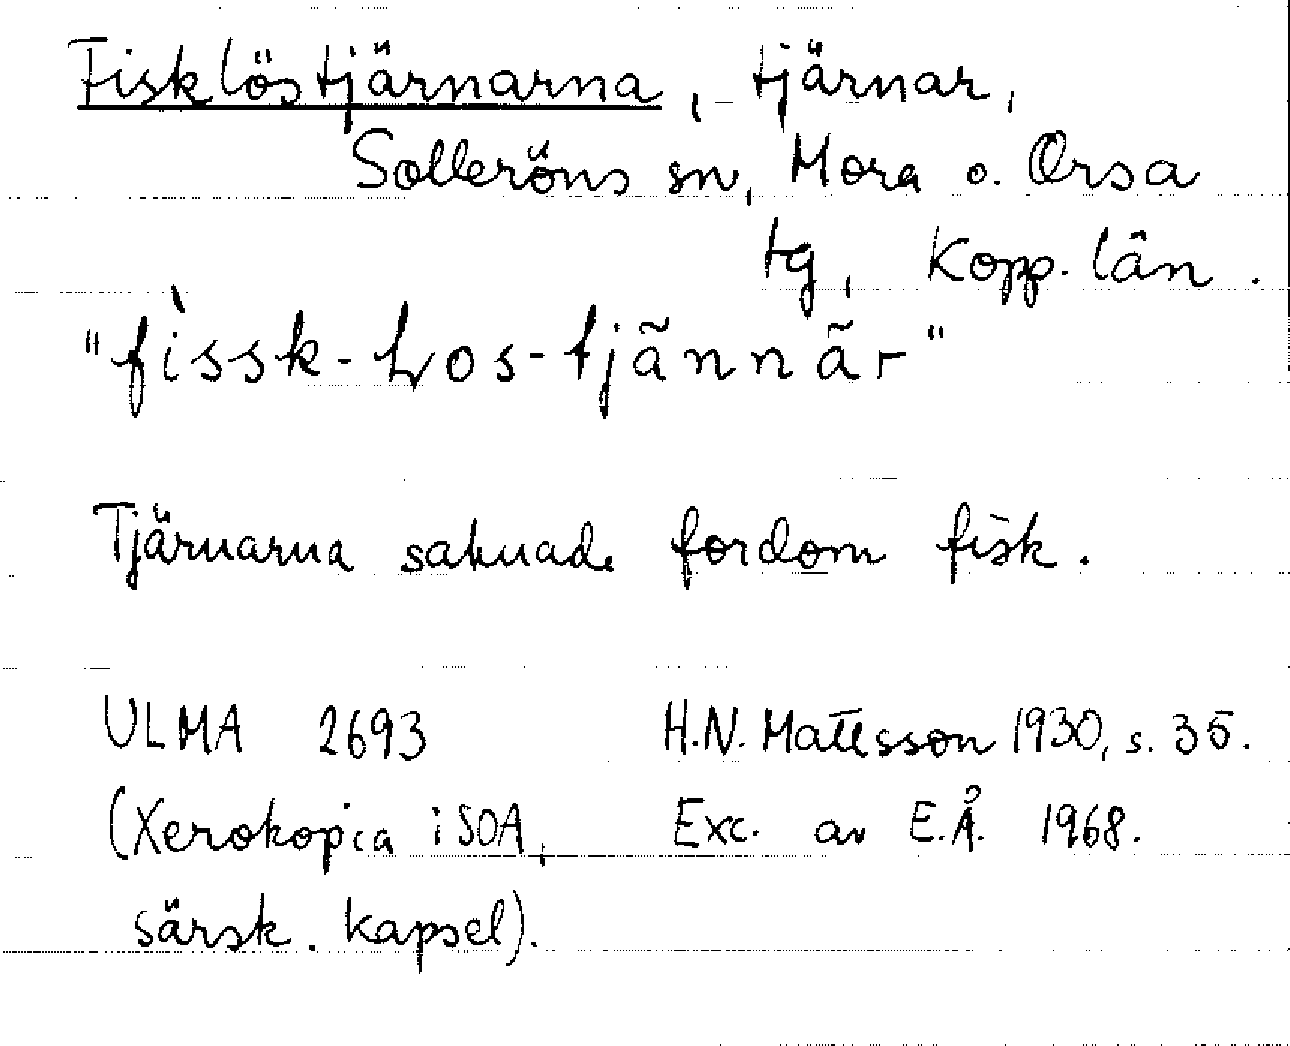 Fisklöstjärnarna, tjärnar,
Solleröns sn, Mora o. Orsa
tg, Kopp. län.
"fìssk-Ƚos-tjãnnãr"
Tjärnarna saknade fordom fisk.
ULMA 2693 H.N. Mattsson 1930, s. 35.
(Xerokopia i SOA, Exc. av E.Å. 1968.
särsk. kapsel).